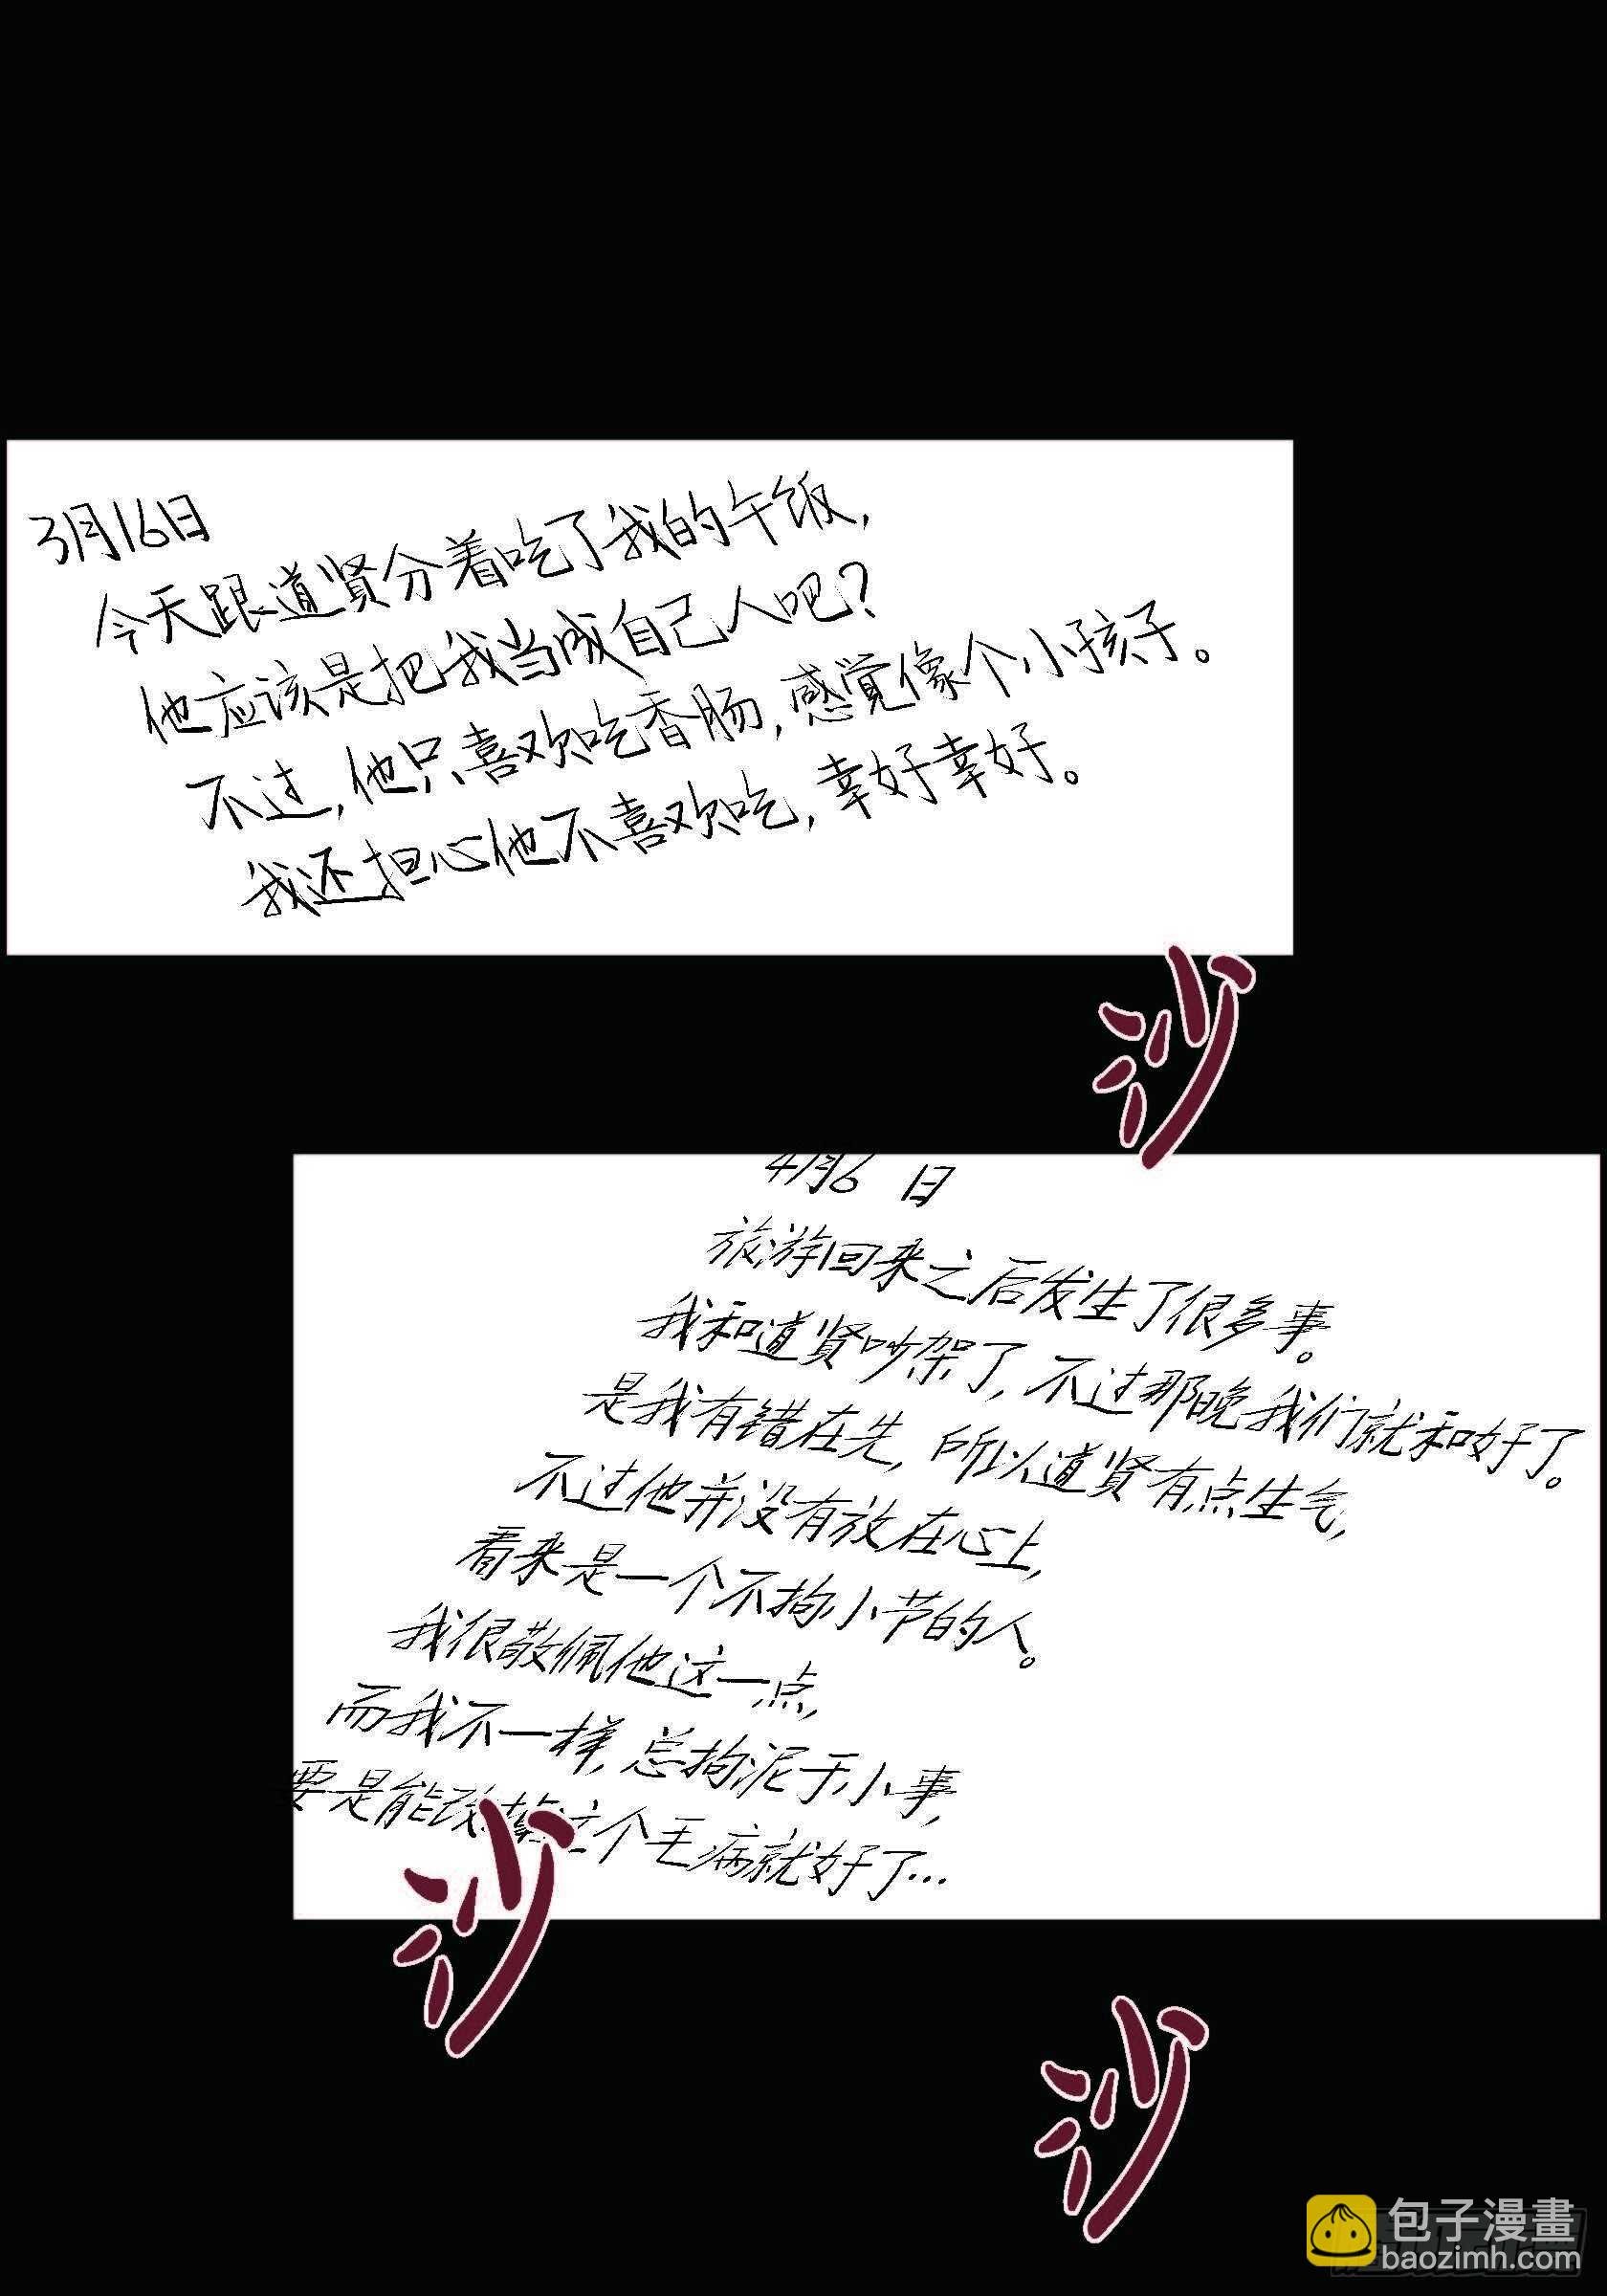 3月16日
今天跟道贤分着吃了我的午饭,
他应该是把我当成自己人吧?
不过,他只喜欢吃香肠,感觉像个小孩子。
我还担心他不喜欢吃,幸好幸好。
沙
4月6日
旅游回来之后发生了很多事。
我和道贤吵架了,不过那晚我们就和好了。
是我有错在先,所以道贤有点生气,
不过他并没有放在心上,
看来是一个不拘小节的人。
我很敬佩他这一点,
而我不一样,总拘泥于小事,
要是能改掉这个毛病就好了...
沙
沙
包子漫畫
baozimh.com